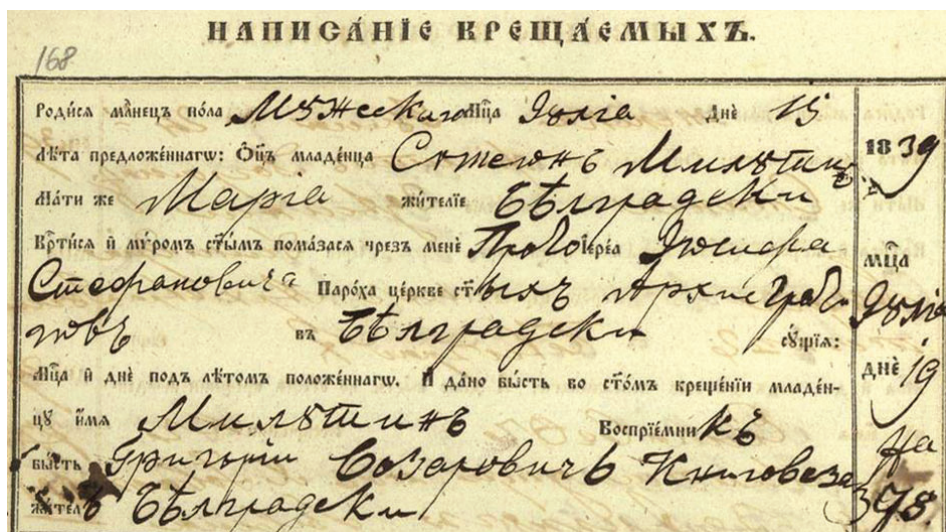 НАПИСА́НІЕ КРЕЩА́ЕМЫХЪ.
168
Роди́сѧ мл҃нецъ по́ла Мꙋжескаго Мц҃а Іꙋлїа Днѐ 15
1839
Лѣ́та предложе́ннагѡ: Ѻ҆ц҃ъ младе́нца Стеѱанъ Милꙋтинъ
Ма́ти же Марїа жи́телїе Бѣлградски
Кр҃ти́сѧ и҆ мѵ́ромъ ст҃ы́мъ пома́засѧ чрез̾ менѐ Прото іере́а Іѡсифа
мц҃а
Стефановича Паро́ха це́ркве ст҃ыхъ Архистрати
Іꙋлїа
говъ въ Бѣлградски сꙋ́щїѧ:
Мц҃а и҆ днѐ под̾ лѣ́томъ положе́ннагѡ. И҆ да́но бы́сть во ст҃о́мъ креще́нїи младе́н-
днѐ 19
цꙋ и҆́мѧ Милꙋтинъ Воспрїе́мникъ
На
бы́сть Григорій Возаровичъ Книговеза
жи́тель Бѣлградски
395.